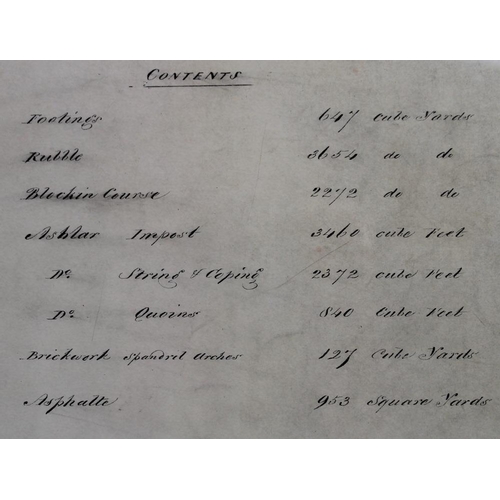 CONTENTS
Footings 647 Cube Yards
Rubble 3654 do do
Blockin Course 2272 do do
Ashlar Impost 3460 cube Feet
Do. String & Coping 2372 cube Feet
Do. Quoins 840 Cube Feet
Brickwork Spandril Arches 127 Cube Yards
Asphalte 953 Square Yards